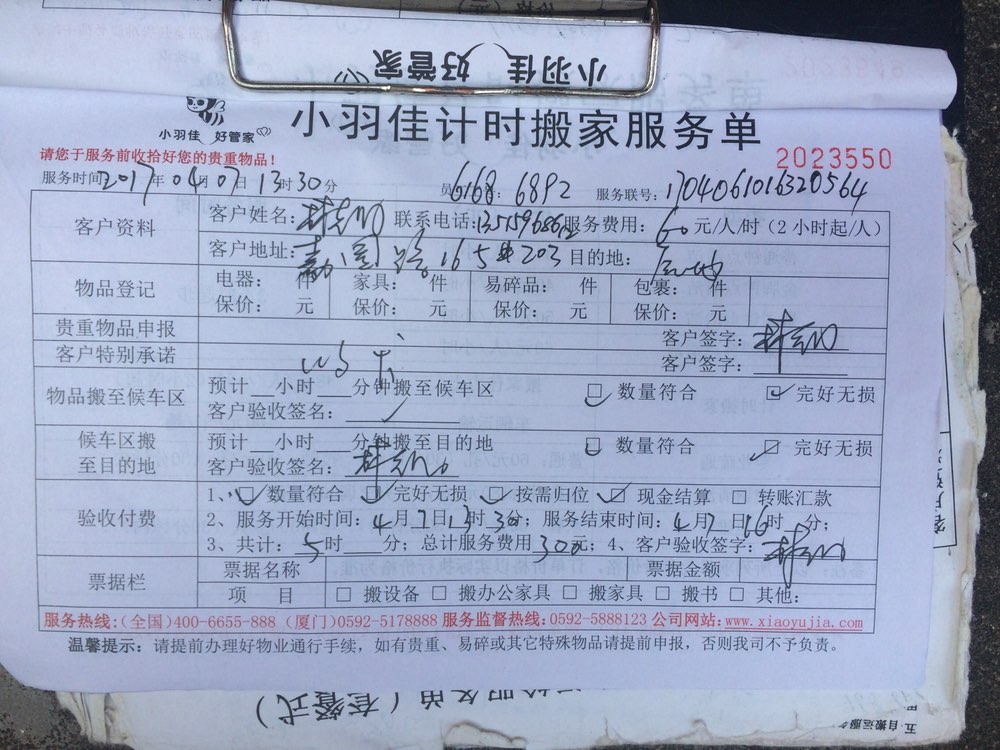 小羽佳 好管家
小羽佳 好管家
小羽佳计时搬家服务单
请您于服务前收拾好您的贵重物品！
2023550
服务时间 2017年04月07日13时30分 员 6168. 6892 服务联号：1704061016320564
客户资料
客户姓名： 联系电话： 服务费用：60元/人/时（2小时起/人）
客户地址： 165 203 目的地：
物品登记
电器： 件 家具： 件 易碎品： 件 包裹： 件
保价： 元 保价： 元 保价： 元 保价： 元
贵重物品申报 客户签字：
客户特别承诺 客户签字：
物品搬至候车区
预计__小时___分钟搬至候车区 □ 数量符合 ☑ 完好无损
客户验收签名：
候车区搬至目的地
预计__小时___分钟搬至目的地 □ 数量符合 ☑ 完好无损
客户验收签名：
验收付费
1、☑ 数量符合 ☑ 完好无损 ☑ 按需归位 ☑ 现金结算 □ 转账汇款
2、服务开始时间：4月7日13时30分；服务结束时间：4月7日16时 分；
3、共计：5时___分；总计服务费用300元；4、客户验收签字：
票据栏
票据名称 票据金额
项 目 □ 搬设备 □ 搬办公家具 □ 搬家具 □ 搬书 □ 其他：
服务热线：（全国）400-6655-888（厦门）0592-5178888 服务监督热线：0592-5888123 公司网站：www.xiaoyujia.com
温馨提示：请提前办理好物业通行手续，如有贵重、易碎或其它特殊物品请提前申报，否则我司不予负责。